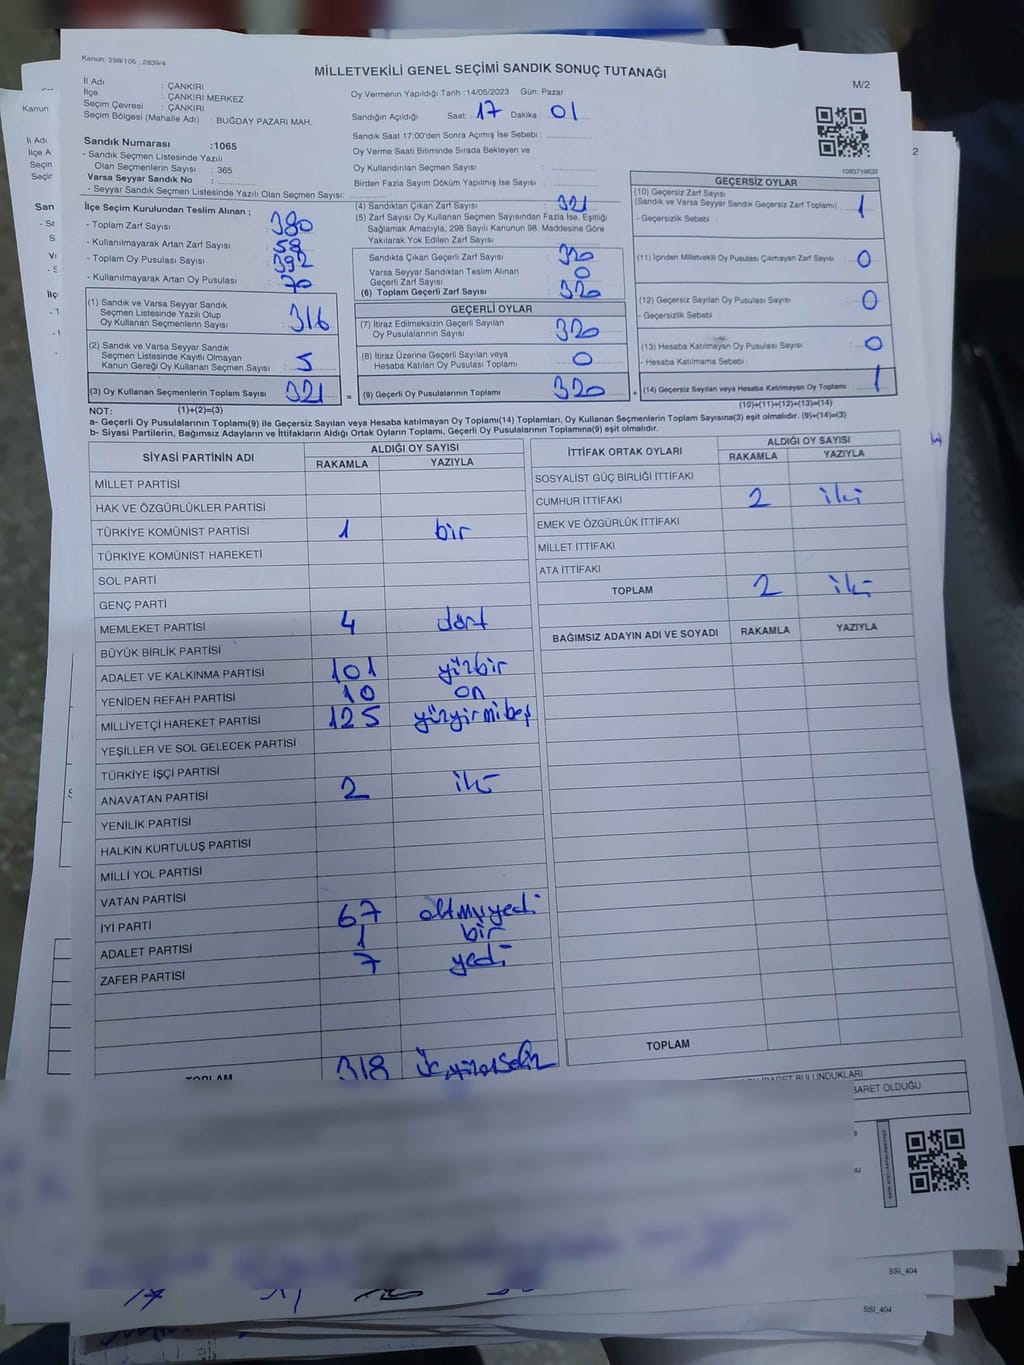 Kanun: 298/105 , 2839/4
MİLLETVEKİLİ GENEL SEÇİMİ SANDIK SONUÇ TUTANAĞI
M/2
İl Adı : ÇANKIRI
İlçe : ÇANKIRI MERKEZ
Seçim Çevresi : ÇANKIRI
Seçim Bölgesi (Mahalle Adı) : BUĞDAY PAZARI MAH.
Oy Vermenin Yapıldığı Tarih :14/05/2023 Gün: Pazar
Sandığın Açıldığı Saat: 17 Dakika: 01
Sandık Saat 17:00'den Sonra Açımış İse Sebebi :
Oy Verme Saati Bitiminde Sırada Bekleyen ve
Oy Kullandırılan Seçmen Sayısı :
Birden Fazla Sayım Döküm Yapılmış İse Sayısı :
1083719632
Sandık Numarası :1065
- Sandık Seçmen Listesinde Yazılı
Olan Seçmenlerin Sayısı : 365
Varsa Seyyar Sandık No :
- Seyyar Sandık Seçmen Listesinde Yazılı Olan Seçmen Sayısı:
İlçe Seçim Kurulundan Teslim Alınan ;
- Toplam Zarf Sayısı : 380
- Kullanılmayarak Artan Zarf Sayısı : 59
- Toplam Oy Pusulası Sayısı : 392
- Kullanılmayarak Artan Oy Pusulası : 70
(1) Sandık ve Varsa Seyyar Sandık
Seçmen Listesinde Yazılı Olup
Oy Kullanan Seçmenlerin Sayısı : 316
(2) Sandık ve Varsa Seyyar Sandık
Seçmen Listesinde Kayıtlı Olmayan
Kanun Gereği Oy Kullanan Seçmen Sayısı : 5
(3) Oy Kullanan Seçmenlerin Toplam Sayısı : 321
(4) Sandıktan Çıkan Zarf Sayısı : 321
(5) Zarf Sayısı Oy Kullanan Seçmen Sayısından Fazla İse, Eşitliği
Sağlamak Amacıyla, 298 Sayılı Kanunun 98. Maddesine Göre
Yakılarak Yok Edilen Zarf Sayısı :
Sandıkta Çıkan Geçerli Zarf Sayısı : 320
Varsa Seyyar Sandıktan Teslim Alınan
Geçerli Zarf Sayısı : 0
(6) Toplam Geçerli Zarf Sayısı : 320
GEÇERLİ OYLAR
(7) İtiraz Edilmeksizin Geçerli Sayılan
Oy Pusulalarının Sayısı : 320
(8) İtiraz Üzerine Geçerli Sayılan veya
Hesaba Katılan Oy Pusulası Toplamı : 0
= (9) Geçerli Oy Pusulalarının Toplamı : 320
GEÇERSİZ OYLAR
(10) Geçersiz Zarf Sayısı
(Sandık ve Varsa Seyyar Sandık Geçersiz Zarf Toplamı) : 1
- Geçersizlik Sebebi :
(11) İçinden Milletvekili Oy Pusulası Çıkmayan Zarf Sayısı : 0
(12) Geçersiz Sayılan Oy Pusulası Sayısı : 0
- Geçersizlik Sebebi :
(13) Hesaba Katılmayan Oy Pusulası Sayısı : 0
- Hesaba Katılmama Sebebi :
+ (14) Geçersiz Sayılan veya Hesaba Katılmayan Oy Toplamı : 1
NOT: (1)+(2)=(3)
(10)+(11)+(12)+(13)=(14)
a- Geçerli Oy Pusulalarının Toplamı(9) ile Geçersiz Sayılan veya Hesaba katılmayan Oy Toplamı(14) Toplamları, Oy Kullanan Seçmenlerin Toplam Sayısına(3) eşit olmalıdır. (9)+(14)=(3)
b- Siyasi Partilerin, Bağımsız Adayların ve İttifakların Aldığı Ortak Oyların Toplamı, Geçerli Oy Pusulalarının Toplamına(9) eşit olmalıdır.
SİYASİ PARTİNİN ADI ALDIĞI OY SAYISI
RAKAMLA YAZIYLA
MİLLET PARTİSİ
HAK VE ÖZGÜRLÜKLER PARTİSİ
TÜRKİYE KOMÜNİST PARTİSİ 1 bir
TÜRKİYE KOMÜNİST HAREKETİ
SOL PARTİ
GENÇ PARTİ
MEMLEKET PARTİSİ 4 dört
BÜYÜK BİRLİK PARTİSİ
ADALET VE KALKINMA PARTİSİ 101 yüzbir
YENİDEN REFAH PARTİSİ 10 on
MİLLİYETÇİ HAREKET PARTİSİ 125 yüzyirmibeş
YEŞİLLER VE SOL GELECEK PARTİSİ
TÜRKİYE İŞÇİ PARTİSİ
ANAVATAN PARTİSİ 2 iki
YENİLİK PARTİSİ
HALKIN KURTULUŞ PARTİSİ
MİLLİ YOL PARTİSİ
VATAN PARTİSİ
İYİ PARTİ 67 altmışyedi
ADALET PARTİSİ 1 bir
ZAFER PARTİSİ 7 yedi
TOPLAM 318
İTTİFAK ORTAK OYLARI ALDIĞI OY SAYISI
RAKAMLA YAZIYLA
SOSYALİST GÜÇ BİRLİĞİ İTTİFAKI
CUMHUR İTTİFAKI 2 iki
EMEK VE ÖZGÜRLÜK İTTİFAKI
MİLLET İTTİFAKI
ATA İTTİFAKI
TOPLAM 2 iki
BAĞIMSIZ ADAYIN ADI VE SOYADI RAKAMLA YAZIYLA
TOPLAM
BULUNDUKLARI
OLDUĞU
SSI_404
SSI_404